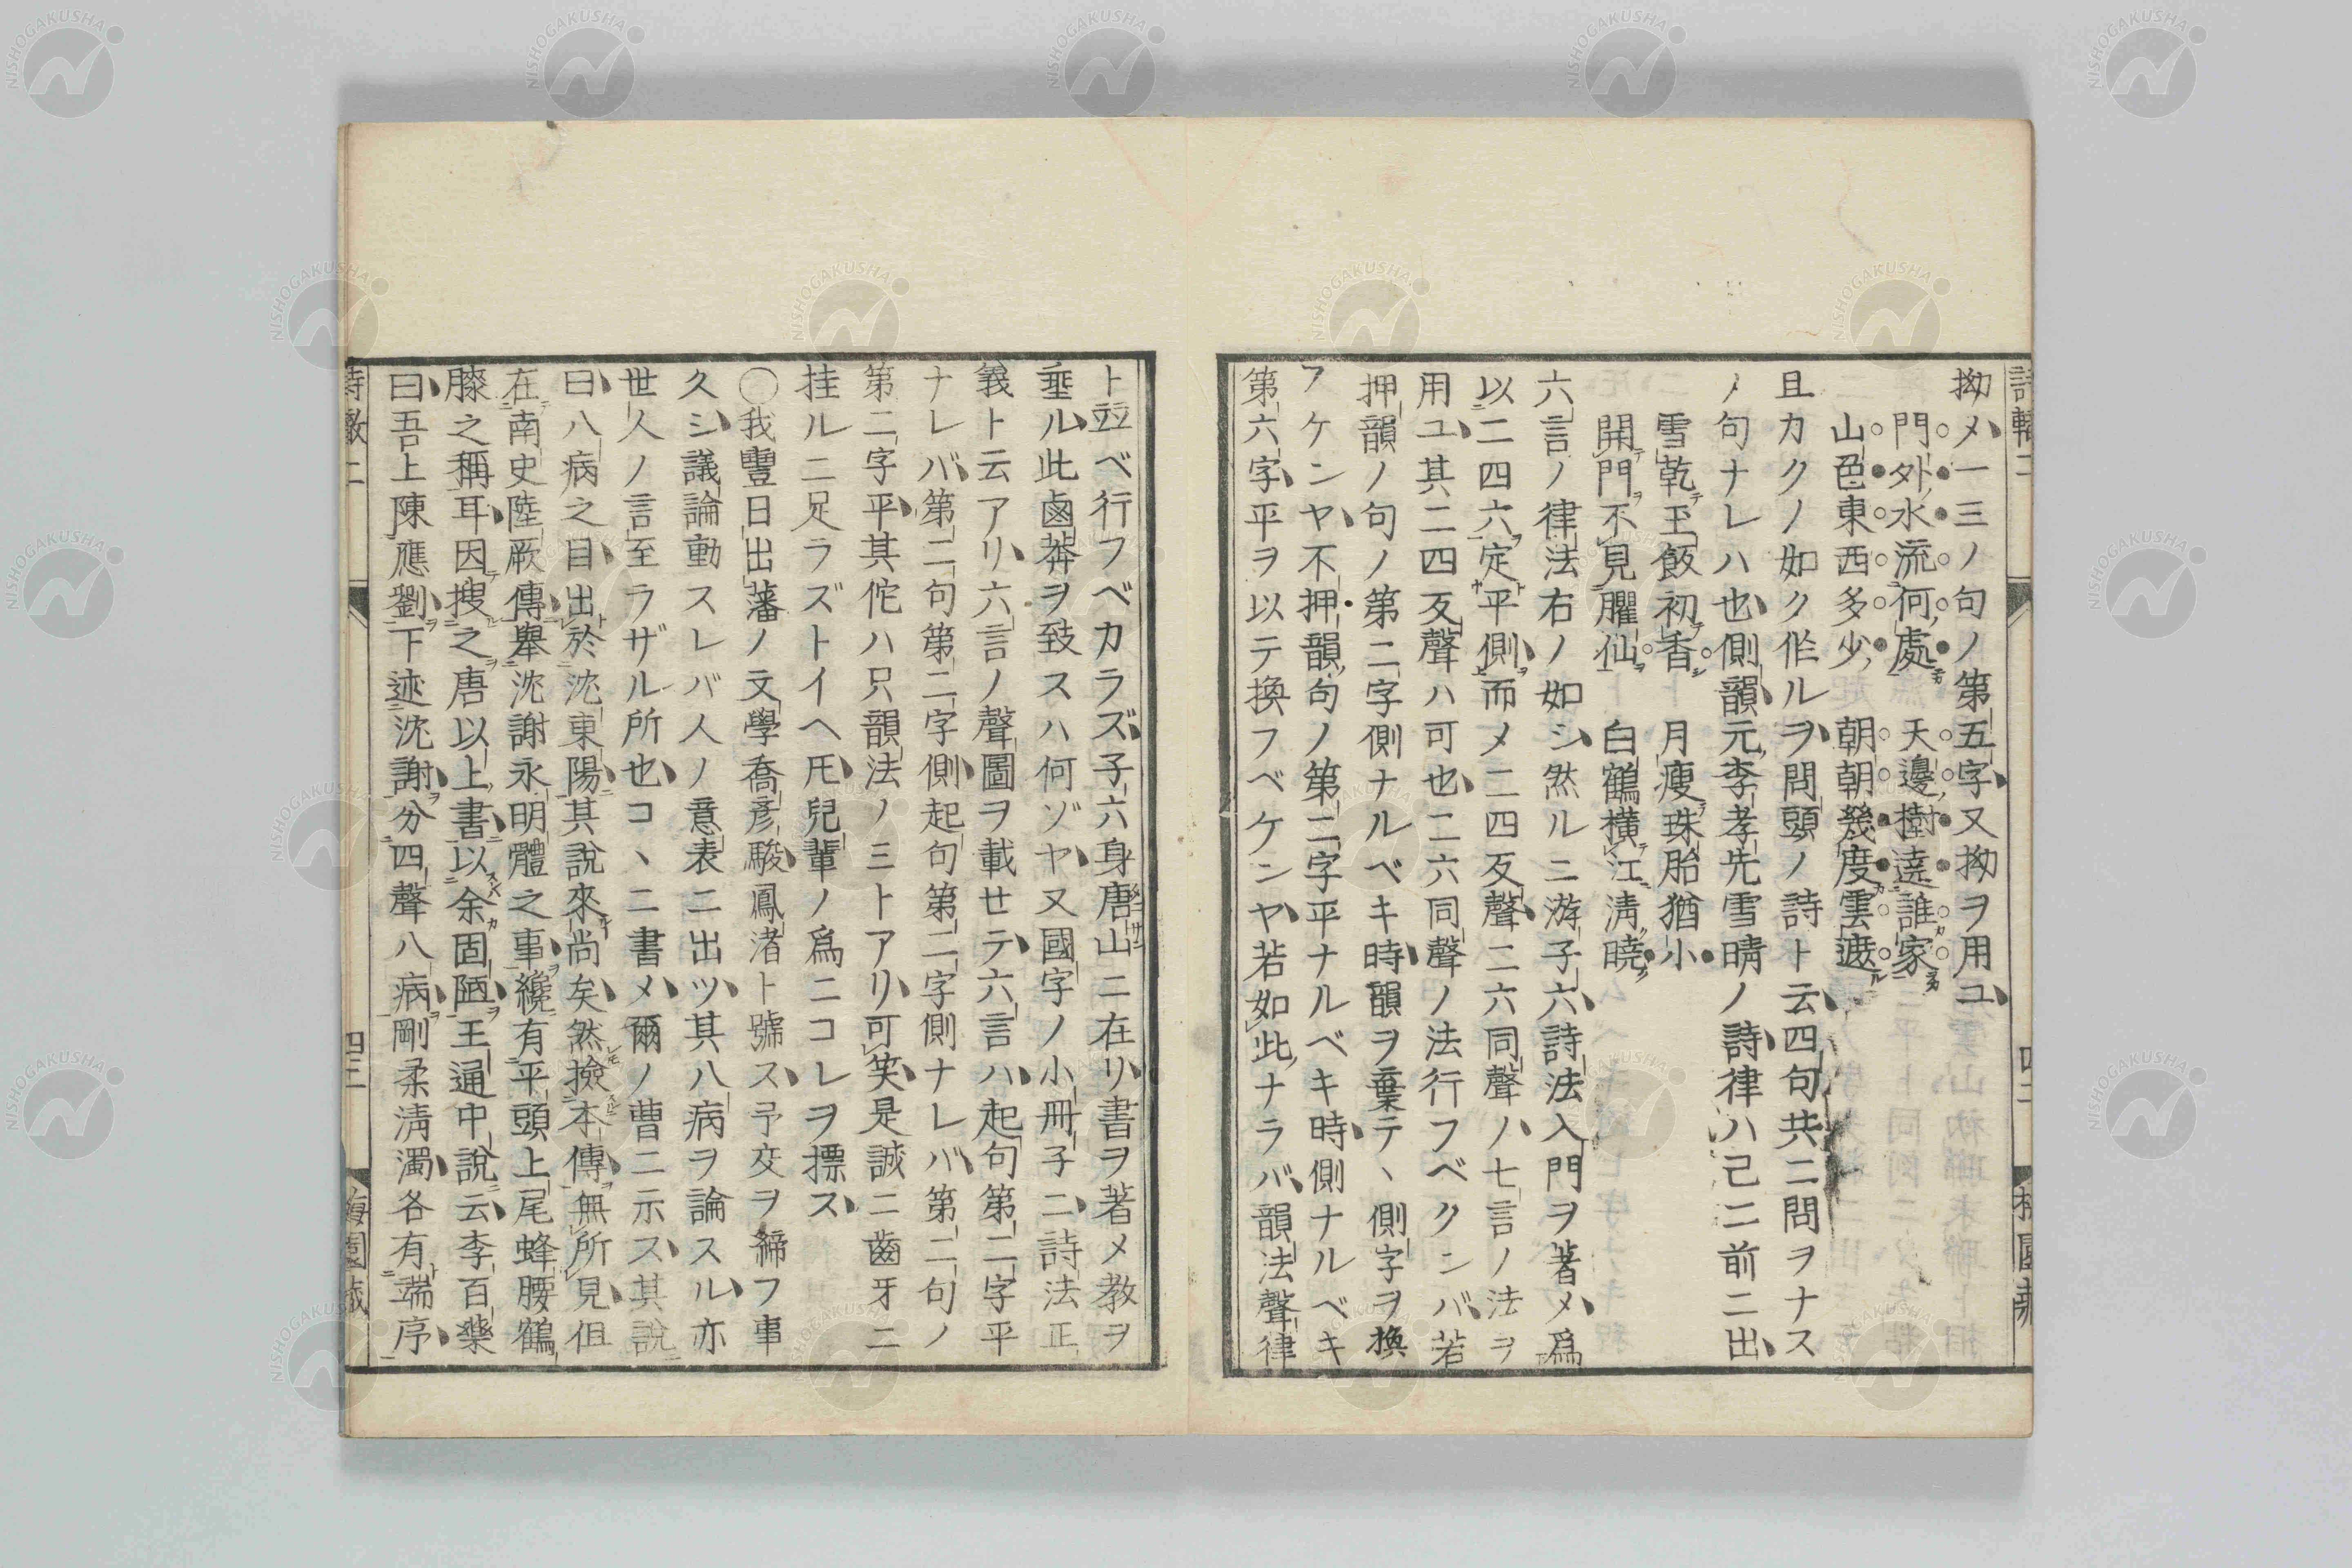 拗メ一三ノ句ノ第五字又拗ヲ用ユ
門外水流何處　天邊樹遶誰家
山色東西多少　朝朝幾度雲遮
且カクノ如ク作ルヲ問頭ノ詩ト云四句共ニ問ヲナス
ノ句ナレハ也側韻元李孝先雪晴ノ詩律ハ己ニ前ニ出
雪乾玉飯初香　月瘦珠胎猶小
開門不見臞仙　白鶴横江淸曉
六言ノ律法右ノ如シ然ルニ游子六詩法入門ヲ著メ爲
以二四六定平側而メ二四反聲二六同聲ハ七言ノ法ヲ
用ユ其二四反聲ハ可也二六同聲ノ法行フベクンバ若
押韻ノ句ノ第二字側ナルベキ時韻ヲ棄テヽ側字ヲ換
フケンヤ不押韻句ノ第二字平ナルベキ時側ナルベキ
第六字平ヲ以テ換フベケンヤ若如此ナラバ韻法聲律
ト竝ベ行フベカラズ子六身唐山ニ在リ書ヲ著メ教ヲ
垂ル此鹵莽ヲ致スハ何ゾヤ又國字ノ小冊子ニ詩法正
義ト云アリ六言ノ聲圖ヲ載セテ六言ハ起句第二字平
ナレバ第二句第二字側起句第二字側ナレバ第二句ノ
第二字平其佗ハ只韻法ノ三トアリ可笑是誠ニ齒牙ニ
挂ルニ足ラズトイヘ𪜈兒輩ノ爲ニコレヲ摽ス
〇我豐日出藩ノ文學喬彦駿鳳渚ト號ス予交ヲ締フ事
久シ議論動スレバ人ノ意表ニ出ツ其八病ヲ論スル亦
世人ノ言至ラザル所也コヽニ書メ爾ノ曹ニ示ス其説
曰八病之目出於沈東陽其說來尚矣然撿本傳無所見但
在南史陸厥傳舉沈謝永明體之事纔有平頭上尾蜂腰鶴
膝之稱耳因搜之唐以上書以余固陋王通中說云李百藥
曰吾上陳應劉下述沈謝分四聲八病剛柔淸濁各有端序